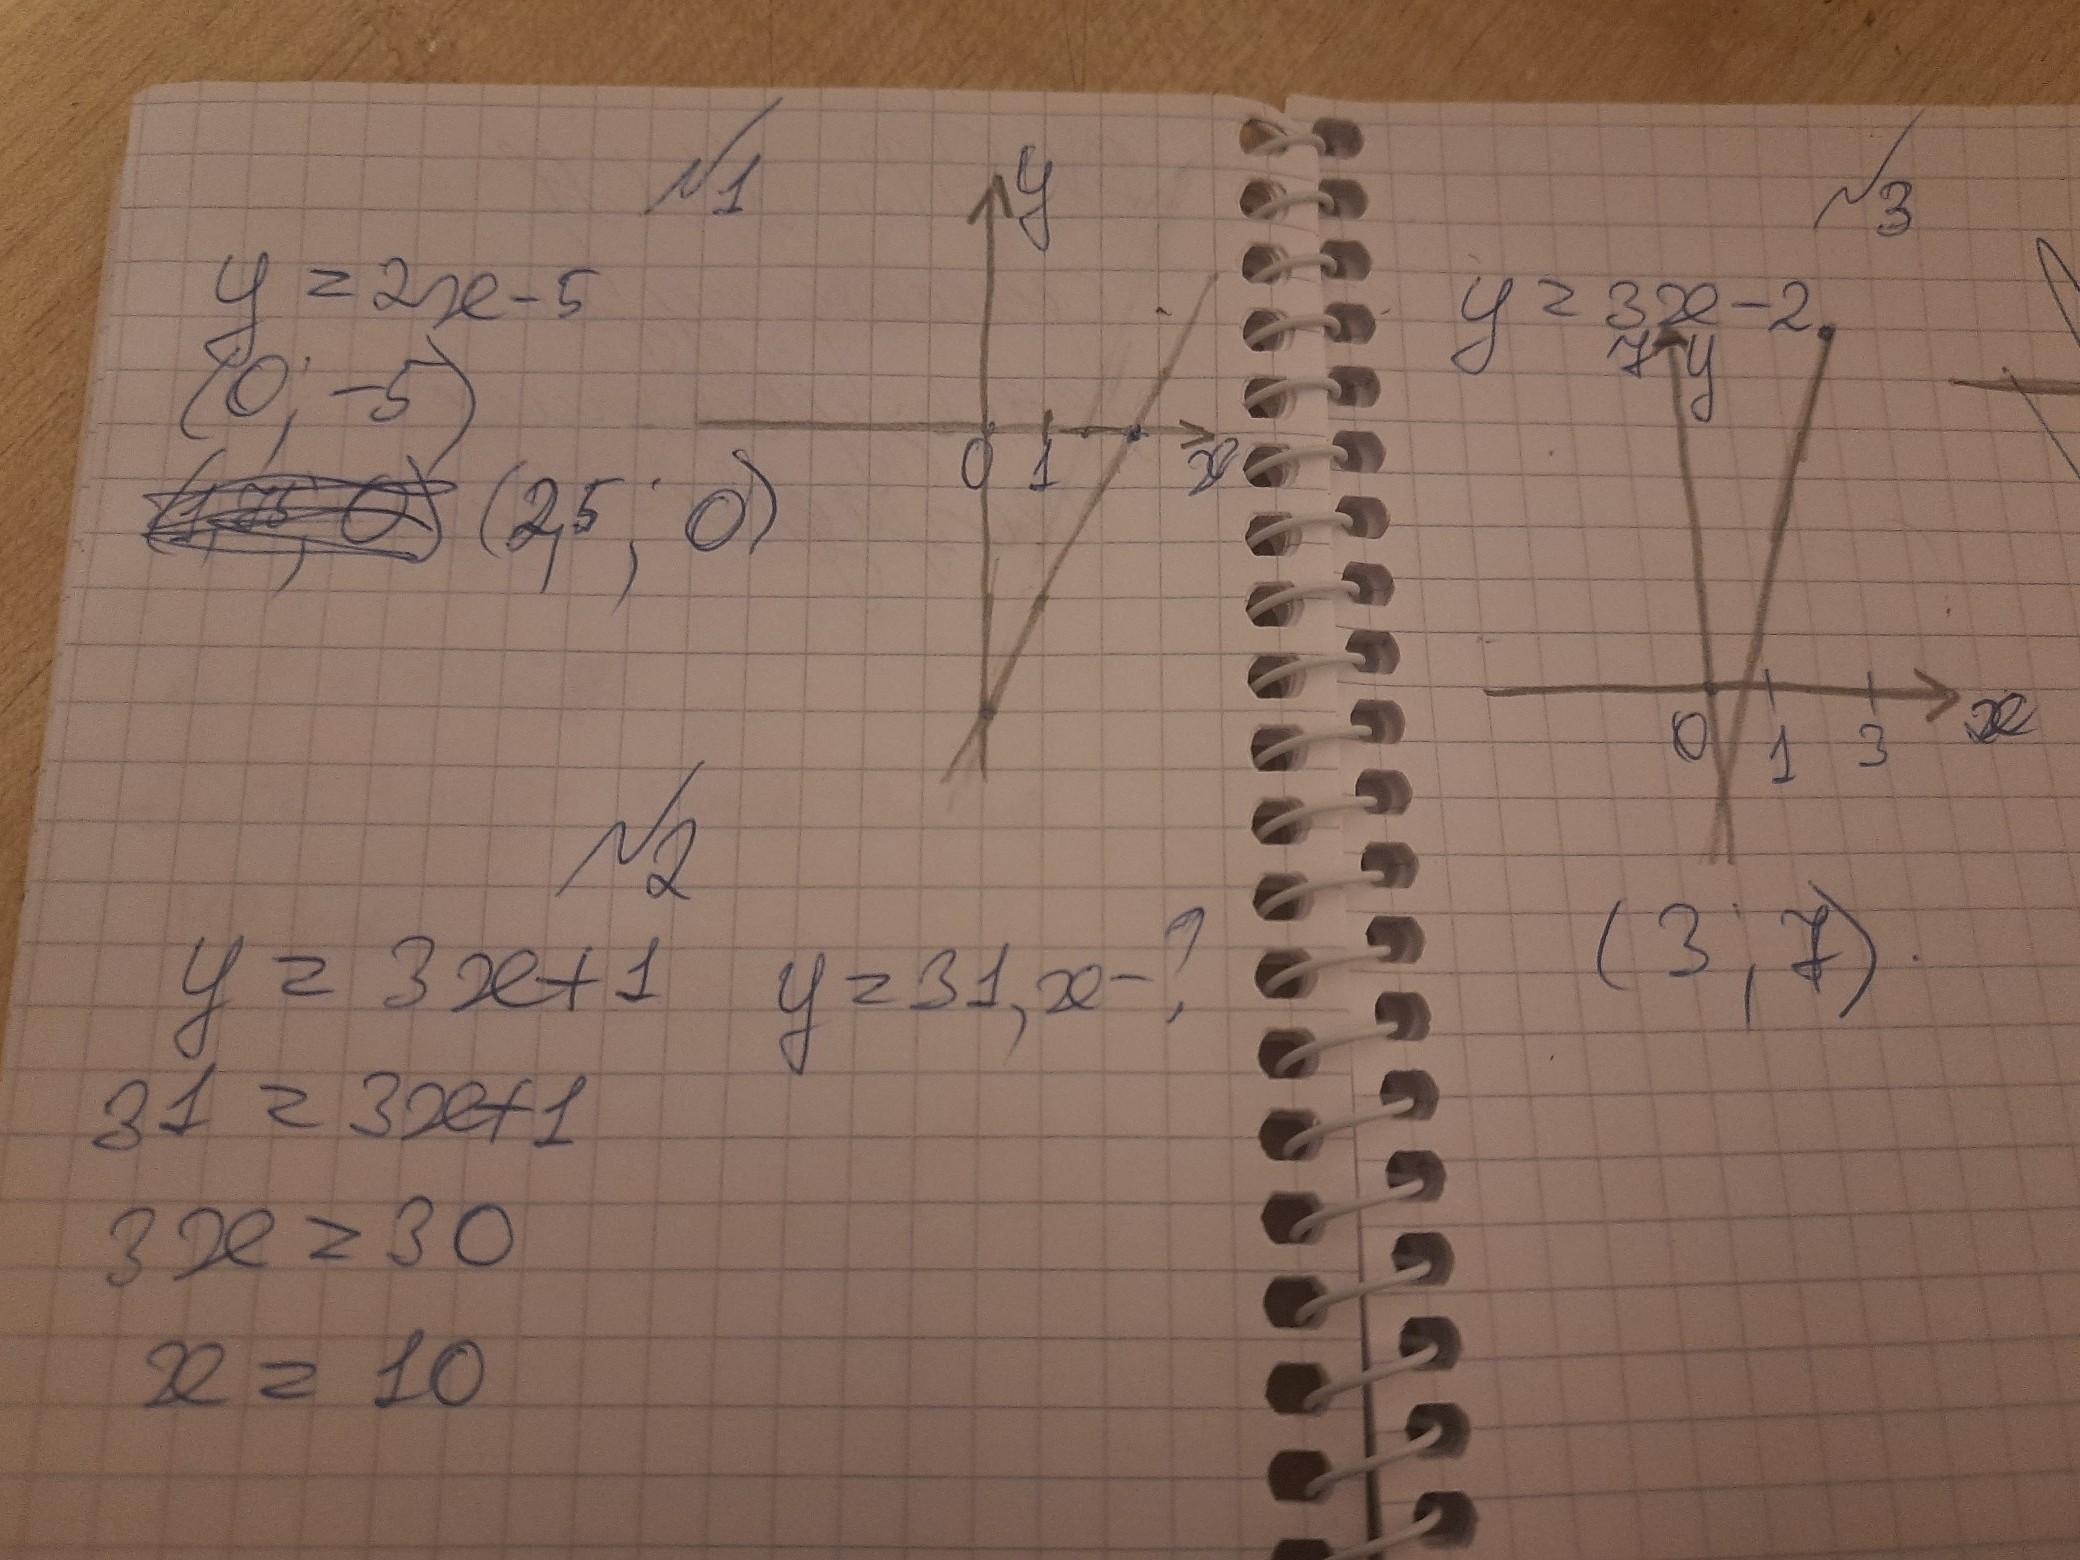 №1
y = 2x - 5
(0; -5)
(2,5; 0)
y
0 1 x
№2
y = 3x+1 y = 31, x - ?
31 = 3x+1
3x = 30
x = 10
№3
y = 3x - 2
7 y
0 1 3 x
(3; 7).